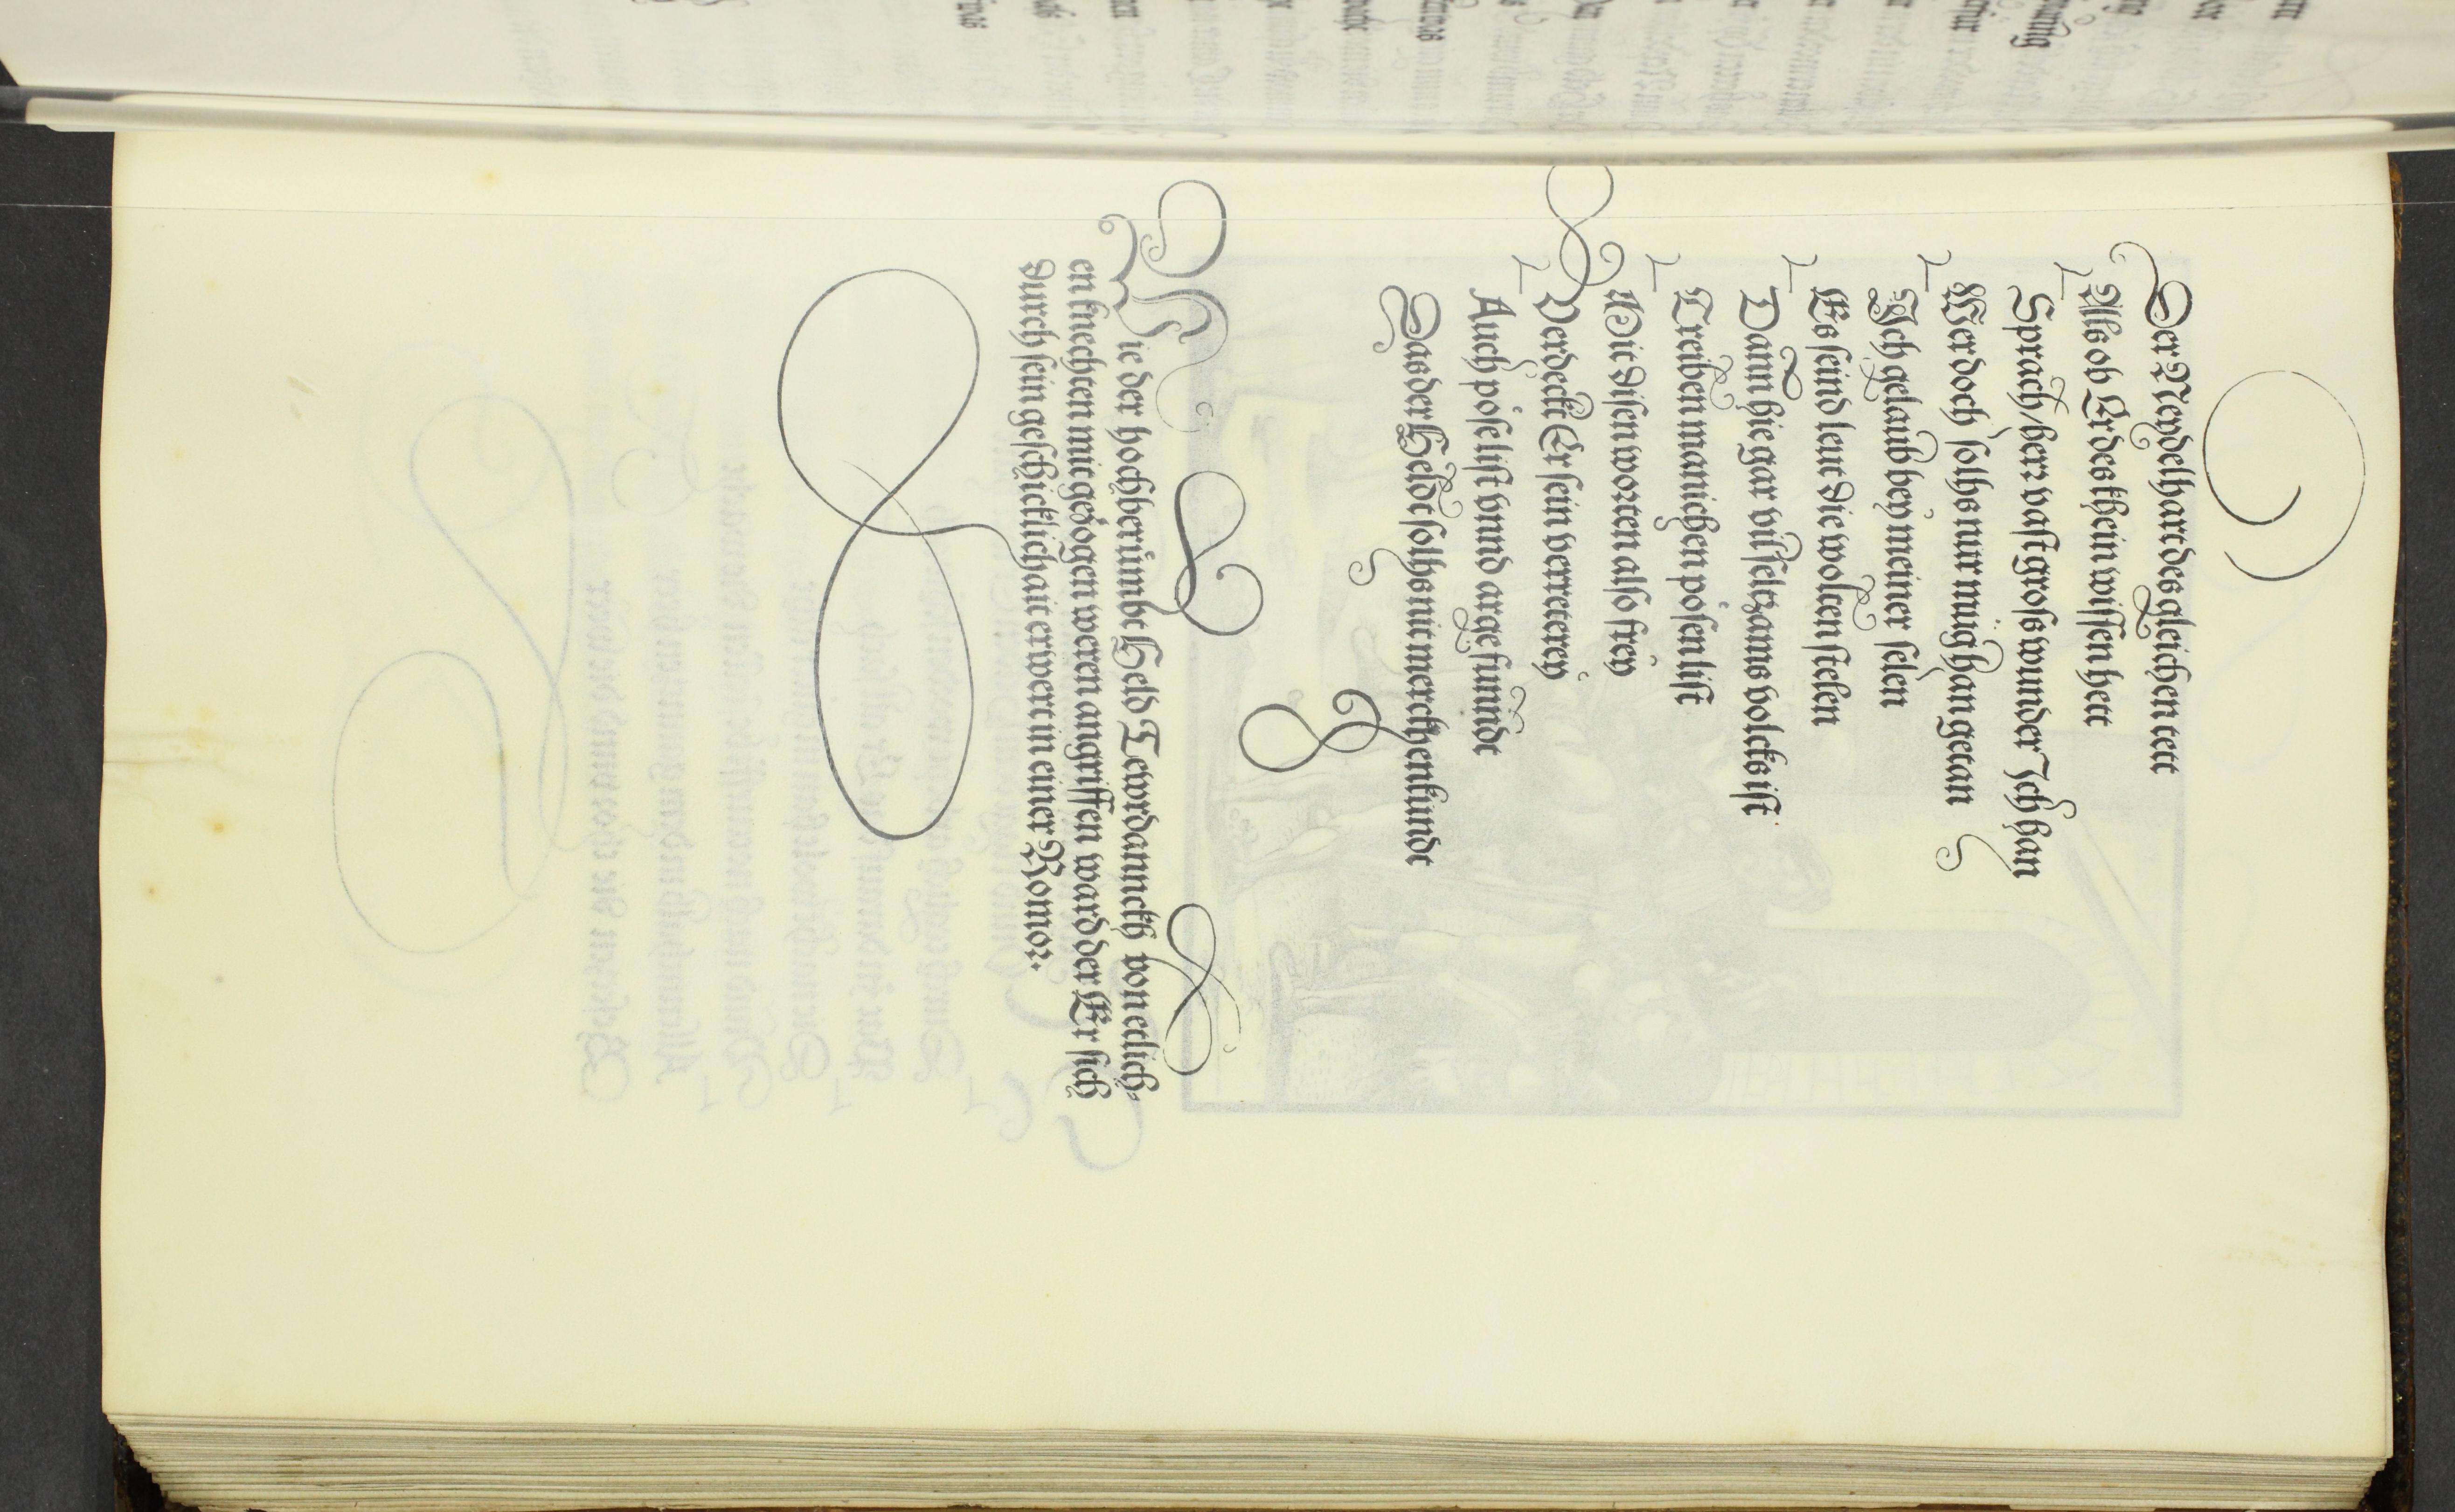 Der Neydelhart desgleichen tett
Als ob Er des khein wissen hett
Sprach / herr vast gross wunder Ich han
Wer doch solhs nur müg han getan
Ich gelaub bey meiner selen
Es seind leut die wolten stelen
Dann hie gar vil seltzams volcks ist
Treiben manichen pösen list
Mit disen worten also frey
Verdeckt Er sein verreterey
Auch pöse list vnnd arge fünndt
Das der Heldt solhs nit merckhen kundt
Wie der hochberümbt Held Tewrdannckh von etlich-
en knechten mit gezogen weren angriffen ward der Er sich
durch sein geschicklichait erwert in einer Romor.